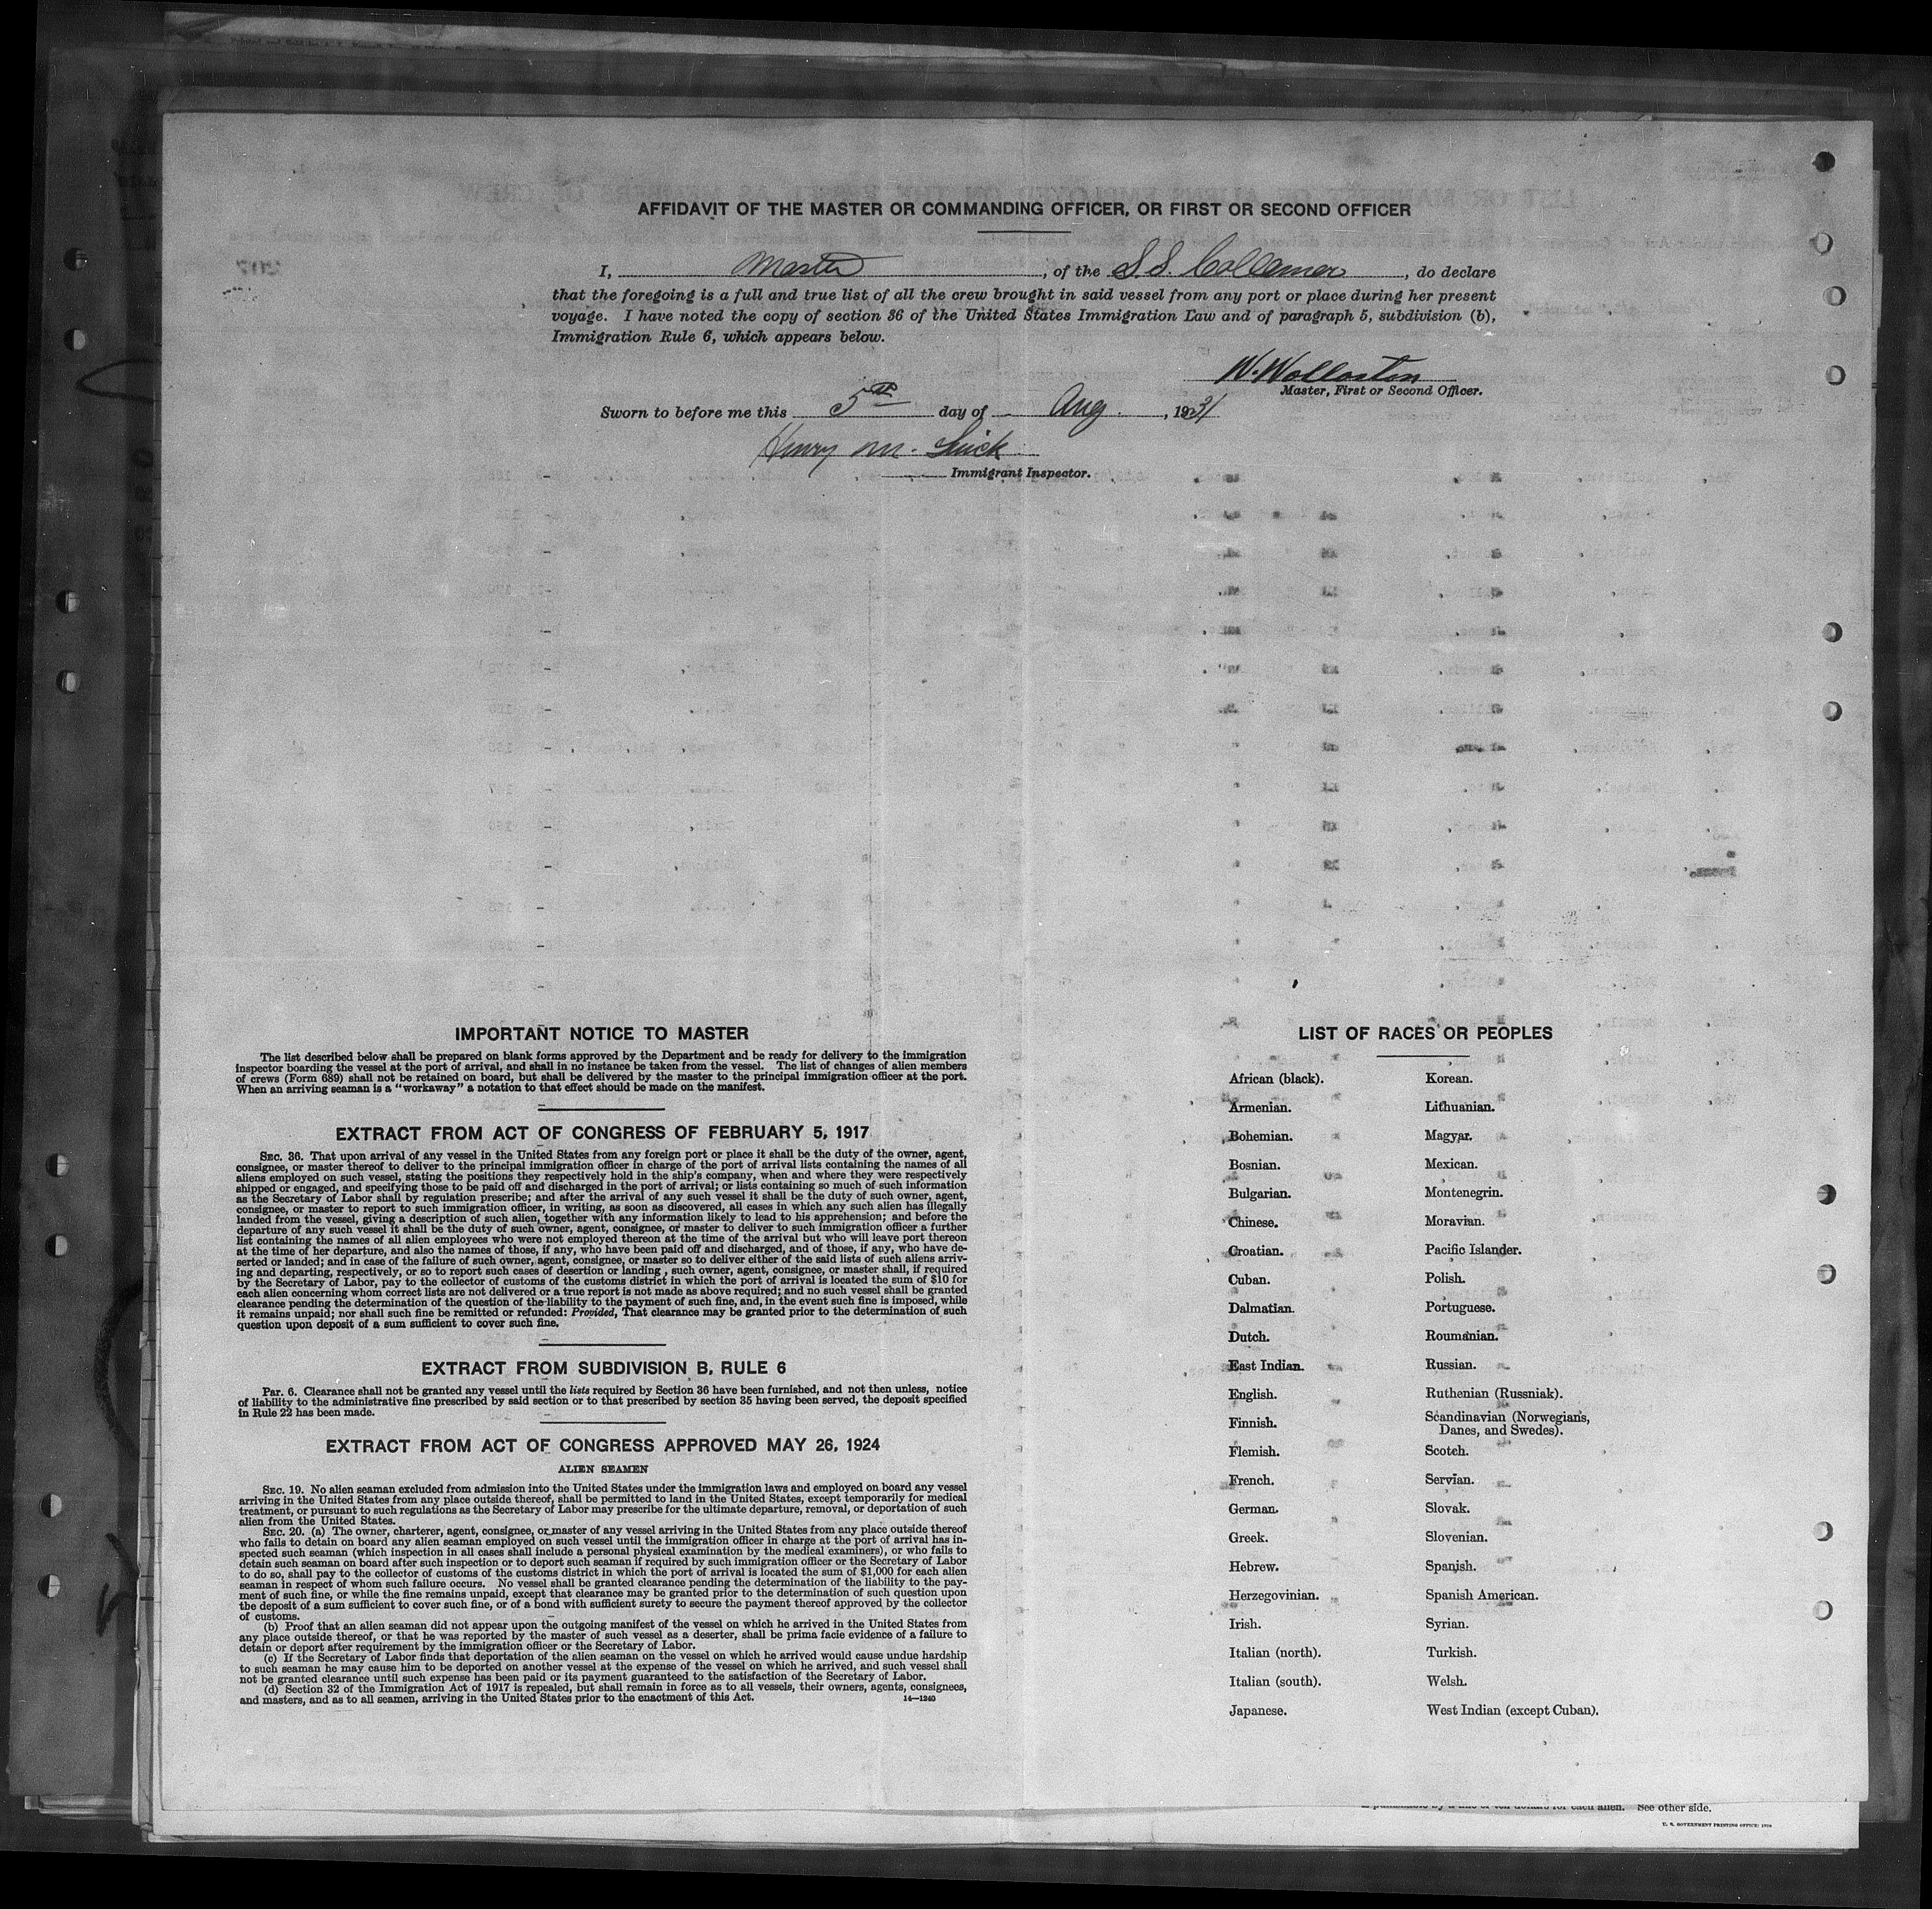 AFFIDAVIT OF THE MASTER OR COMMANDING OFFICER, OR FIRST OR SECOND OFFICER
I, Master, of the S.S. Collamer, do declare
that the foregoing is a full and true list of all the crew brought in said vessel from any port or place during her present
voyage. I have noted the copy of section 36 of the United States Immigration Law and of paragraph 5, subdivision (b),
Immigration Rule 6, which appears below.
W. Wollaston
Master, First or Second Officer.
Sworn to before me this 5th day of Aug., 1931
Henry M.
Immigrant Inspector.
IMPORTANT NOTICE TO MASTER
The list described below shall be prepared on blank forms approved by the Department and be ready for delivery to the immigration
inspector boarding the vessel at the port of arrival, and shall in no instance be taken from the vessel. The list of changes of alien members
of crews (Form 689) shall not be retained on board, but shall be delivered by the master to the principal immigration officer at the port.
When an arriving seaman is a "workaway" a notation to that effect should be made on the manifest.
EXTRACT FROM ACT OF CONGRESS OF FEBRUARY 5, 1917
SEC. 36. That upon arrival of any vessel in the United States from any foreign port or place it shall be the duty of the owner, agent,
consignee, or master thereof to deliver to the principal immigration officer in charge of the port of arrival lists containing the names of all
aliens employed on such vessel, stating the positions they respectively hold in the ship's company, when and where they were respectively
shipped or engaged, and specifying those to be paid off and discharged in the port of arrival; or lists containing so much of such information
as the Secretary of Labor shall by regulation prescribe; and after the arrival of any such vessel it shall be the duty of such owner, agent,
consignee, or master to report to such immigration officer, in writing, as soon as discovered, all cases in which any such alien has illegally
landed from the vessel, giving a description of such alien, together with any information likely to lead to his apprehension; and before the
departure of any such vessel it shall be the duty of such owner, agent, consignee, or master to deliver to such immigration officer a further
list containing the names of all alien employees who were not employed thereon at the time of the arrival but who will leave port thereon
at the time of her departure, and also the names of those, if any, who have been paid off and discharged, and of those, if any, who have de-
serted or landed; and in case of the failure of such owner, agent, consignee, or master so to deliver either of the said lists of such aliens arriv-
ing and departing, respectively, or so to report such cases of desertion or landing, such owner, agent, consignee, or master shall, if required
by the Secretary of Labor, pay to the collector of customs of the customs district in which the port of arrival is located the sum of $10 for
each alien concerning whom correct lists are not delivered or a true report is not made as above required; and no such vessel shall be granted
clearance pending the determination of the question of the liability to the payment of such fine, and, in the event such fine is imposed, while
it remains unpaid; nor shall such fine be remitted or refunded: Provided, That clearance may be granted prior to the determination of such
question upon deposit of a sum sufficient to cover such fine.
EXTRACT FROM SUBDIVISION B, RULE 6
Par. 6. Clearance shall not be granted any vessel until the lists required by Section 36 have been furnished, and not then unless, notice
of liability to the administrative fine prescribed by said section or to that prescribed by section 35 having been served, the deposit specified
in Rule 22 has been made.
EXTRACT FROM ACT OF CONGRESS APPROVED MAY 26, 1924
ALIEN SEAMEN
SEC. 19. No alien seaman excluded from admission into the United States under the immigration laws and employed on board any vessel
arriving in the United States from any place outside thereof, shall be permitted to land in the United States, except temporarily for medical
treatment, or pursuant to such regulations as the Secretary of Labor may prescribe for the ultimate departure, removal, or deportation of such
alien from the United States.
SEC. 20. (a) The owner, charterer, agent, consignee, or master of any vessel arriving in the United States from any place outside thereof
who fails to detain on board any alien seaman employed on such vessel until the immigration officer in charge at the port of arrival has in-
spected such seaman (which inspection in all cases shall include a personal physical examination by the medical examiners), or who fails to
detain such seaman on board after such inspection or to deport such seaman if required by such immigration officer or the Secretary of Labor
to do so, shall pay to the collector of customs of the customs district in which the port of arrival is located the sum of $1,000 for each alien
seaman in respect of whom such failure occurs. No vessel shall be granted clearance pending the determination of the liability to the pay-
ment of such fine, or while the fine remains unpaid, except that clearance may be granted prior to the determination of such question upon
the deposit of a sum sufficient to cover such fine, or of a bond with sufficient surety to secure the payment thereof approved by the collector
of customs.
(b) Proof that an alien seaman did not appear upon the outgoing manifest of the vessel on which he arrived in the United States from
any place outside thereof, or that he was reported by the master of such vessel as a deserter, shall be prima facie evidence of a failure to
detain or deport after requirement by the immigration officer or the Secretary of Labor.
(c) If the Secretary of Labor finds that deportation of the alien seaman on the vessel on which he arrived would cause undue hardship
to such seaman he may cause him to be deported on another vessel at the expense of the vessel on which he arrived, and such vessel shall
not be granted clearance until such expense has been paid or its payment guaranteed to the satisfaction of the Secretary of Labor.
(d) Section 32 of the Immigration Act of 1917 is repealed, but shall remain in force as to all vessels, their owners, agents, consignees,
and masters, and as to all seamen, arriving in the United States prior to the enactment of this Act. 14—1240
LIST OF RACES OR PEOPLES
African (black).
Armenian.
Bohemian.
Bosnian.
Bulgarian.
Chinese.
Croatian.
Cuban.
Dalmatian.
Dutch.
East Indian.
English.
Finnish.
Flemish.
French.
German.
Greek.
Hebrew.
Herzegovinian.
Irish.
Italian (north).
Italian (south).
Japanese.
Korean.
Lithuanian.
Magyar.
Mexican.
Montenegrin.
Moravian.
Pacific Islander.
Polish.
Portuguese.
Roumanian.
Russian.
Ruthenian (Russniak).
Scandinavian (Norwegians,
Danes, and Swedes).
Scotch.
Servian.
Slovak.
Slovenian.
Spanish.
Spanish American.
Syrian.
Turkish.
Welsh.
West Indian (except Cuban).
for each alien. See other side.
U. S. GOVERNMENT PRINTING OFFICE: